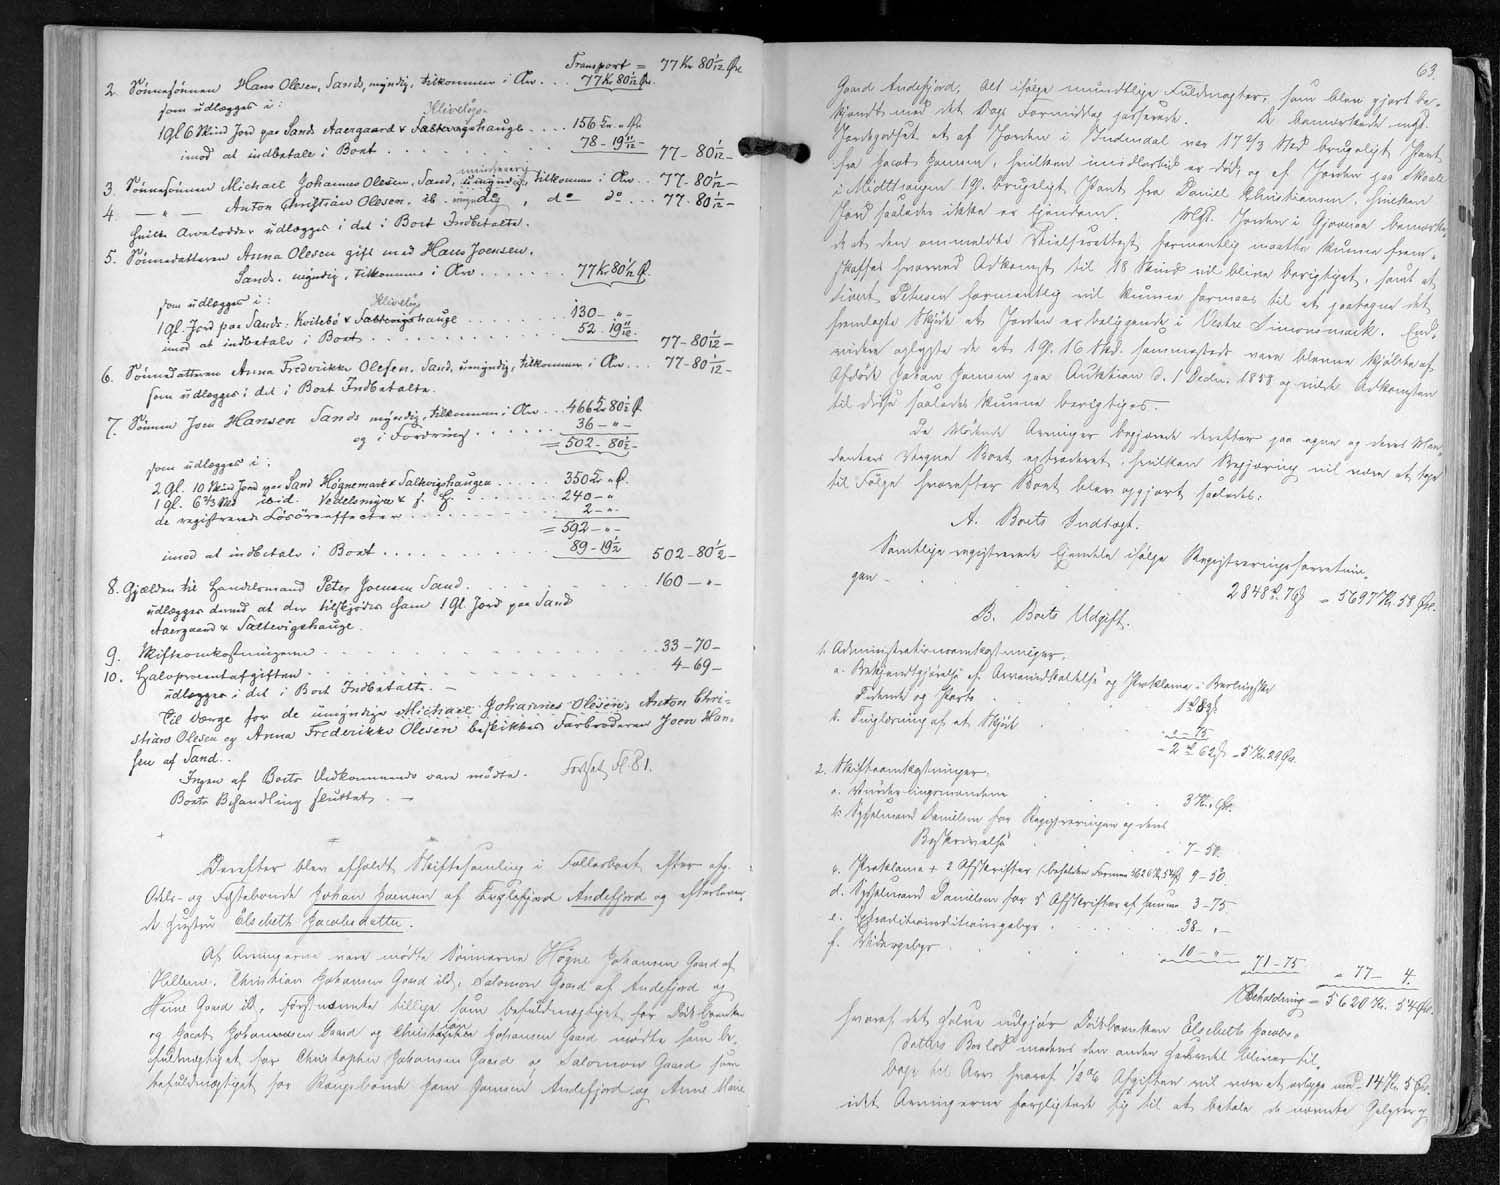 Transport = 77 Kr 80 1/12 Øre
2. Sønnesønnen Hans Olesen, Sands, myndig, tilkommer i Arv . . . 77 Kr 80 1/12 Ør.
som udlægges i:
Kliveløys
1 Gl 6 Skind Jord paa Sands Aaergaard & Saltevigshauge . . . . 156 Kr. " Ør.
imod at indbetale i Boet . . . . . . . . 78 - 19 11/12 - 77 - 80 1/12 -
3. Sønnesønnen Michael Johannes Olesen, Sand, umyndig, tilkommer i Arv . . 77 - 80 1/12 -
4. — " — Anton Christian Olesen. ib. umyndig, do do . . . 77. 80 1/12 -
hvilke Arvelodder udlægges i det i Boet Indbetalte.
5. Sønnedatteren Anna Olesen gift med Hans Joensen,
Sands. myndig, tilkommer i Arv . . . . . . 77 Kr 80 1/12 Ø.
som udlægges i:
Kliveløys
1 Gl. Jord paa Sands: Kvitebø & Saltevigshauge . . . . . . 130 - " -
imod at indbetale i Boet . . . . . . . . . . 52. 19 11/12. 77 - 80 1/12 -
6. Sønnedatteren Anna Frederikke Olesen. Sand, umyndig, tilkommer i Arv . . . 77 - 80 1/12 -
som udlægges i det i Boet Indbetalte.
7. Sønnen Joen Hansen Sands myndig, tilkommer i Arv . . . 466 Kr 80 1/2 Ø.
og i Fordring . . . . . . 36 - " -
= 502 - 80 1/2 -
som udlægges i:
2 Gl. 10 Skind Jord paa Sand Høgnemark & Saltvigshaugen . . . . . 350 Kr " Ø.
1 Gl. 6 2/3 Skd ibid. Vedelsmyre & . . . . . 240 - "
de registrerede Løsøreeffecter . . . . . . . . . 2 - " -
= 592 - " -
imod at indbetale i Boet . . . . . . . . . . . 89 - 19 1/2 502 - 80 1/2 -
8. Gjælden til Handelsmand Peter Joensen Sand . . . . . . . . 160 — " -
udlægges derved at der tilskjødes ham 1 Gl. Jord paa Sand
Aaergaard & Saltevigshauge.
9. Skifteomkostningerne . . . . . . . . . . . . . 33 - 70 -
10. Halvprocentafgiften . . . . . . . . . . . . . 4 - 69 -
udlægges i det i Boet Indbetalte. —
Til Værge for de umyndige Michael Johannes Olesen, Anton Chri-
stians Olesen og Anna Frederikke Olesen beskikkes Farbroderen Joen Han-
sen af Sand.
Ingen af Boets Vedkommende vare mødte. Forts. Fol. 81.
Boets Behandling sluttet. —
Derefter blev afholdt Skiftesamling i Fællesboet efter afg.
Odels- og Fæstebonde Johan Joensen af Fuglefjord Andefjord og efterleven-
de Hustru Elsebeth Jacobsdatter.
Af Arvingerne vare mødte Sønnerne Høgne Johansen Gaard af
Hellerne, Christian Johansen Gaard ibd., Salomon Gaard af Andefjord og
Heine Gaard ibd., førstnævnte tillige som befuldmægtiget for
og Jacob Johannesen Gaard og Christopher Johansen Gaard mødte som be-
fuldmægtiget for Christopher Johansen Gaard og Salomon Gaard som
befuldmægtiget for Hans Jensen Andefjord og Anne Marie
63.
Gaard Andefjord, Alt ifølge mundtlige Fuldmagter, som blev gjort be-
kjendt med det Boets Formidler passerede. De bemærkede mht.
Jordegodset at af Jorden i Indendal var 17 2/3 Skd brugeligt Pant
fra Jacob Joensen, hvilken imidlertid er død, og af Jorden paa Skaale
i Midthaugen 1 Gl. brugeligt Pant fra Daniel Christiansen, hvilken
Jord saaledes ikke er Ejendom. Mht. Jorden i Gjovnen bemærke-
de at den ommeldte Skiftesattest formentlig maatte kunne frem-
skaffes hvorved Adkomst til 18 Skind vil blive berigtiget, samt at
Sivert Petersen formentlig vil kunne formaas til at paategne det
fremlagte Skjøde at Jorden er beliggende i Vestre Simonsmark. End-
videre oplyste de at 1 Gl. 16 Skd. sammesteds vare blevne kjøbte af
Afdøde Johan Joensen paa Auktion d. 1 Decbr. 1858 og vilde Adkomsten
til disse saaledes kunne berigtiges. —
De Mødende Arvinger begjærede derefter paa egne og deres Man-
danters Vegne Boet extraderet, hvilken Begjæring vil være at tage
til Følge hvorefter Boet blev opgjort saaledes:
A. Boets Indtægt.
Samtlige registrerede Ejendele ifølge Registreringsforretnin-
gen - 2848 rd. 7 ß = 5697 Kr. 58 Øre.
B. Boets Udgift.
1. Administrationsomkostninger,
a. Bekjendtgjørelse af Arveindkaldelse og Proklama i Berlingske
Tidende og Porto . . .
b. Tinglæsning af et Skjøde . . . . . " - 75
- 2 rd 62 ß = 5 Kr. 29 Øre.
2. Skifteomkostninger.
a. Vurderingsmændene . . . . 3 Kr. " Øre.
b. Sysselmand Danielsen for Registreringen og dens
Beskrivelse . . 7 - 50.
c. Proklama + 2 Afskrifter (beholden Formue 5620 Kr 54 Ø) 9 - 50
d. Sysselmand Danielsen for 5 Afskrifter af samme 3 - 75.
e. Extraditionsditionsgebyr . . . . 38 - " -
f. Vidnegebyr . . . 10 - " -
71 - 75 = 77 - 4.
Beholdning = 5620 Kr. 54 Øre.
hvoraf det halve udgjør Enken Elsebeth Jacobs-
datters Boslod medens den anden Halvdel bliver til-
bage til Arv hvoraf 1/2 % Afgiften vil være at erlægge med = 14 Kr. 5 Øre.
idet Arvingerne forpligtede sig til at betale de nævnte Gebyrer og